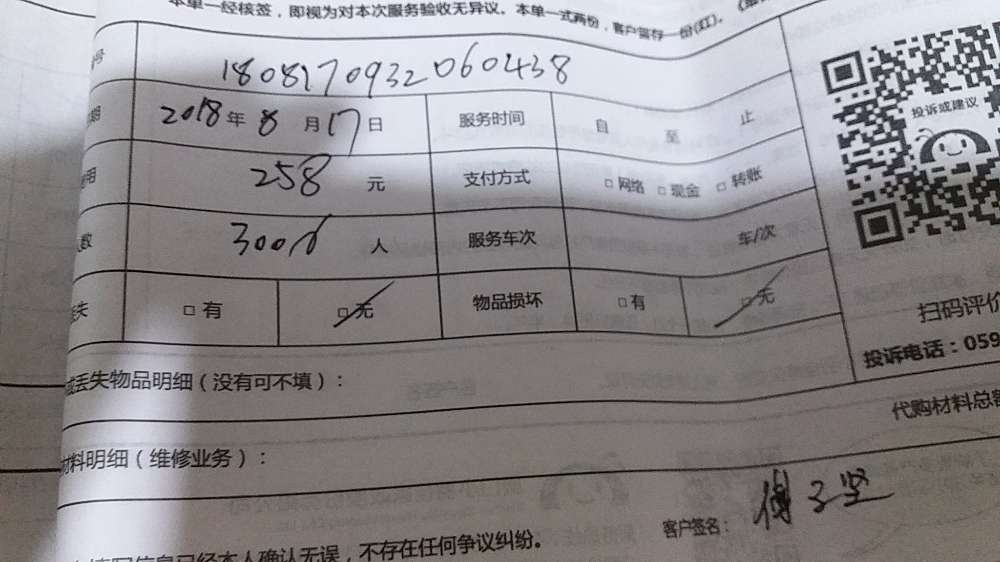 本单一经核签，即视为对本次服务验收无异议。本单一式两份，客户留存一份(红)。
号 1808170932060438
期 2018年8月17日 服务时间 自 至 止
用 258 元 支付方式 □网络 □现金 □转账
人数 人 服务车次 车/次
丢失 □有 □无 物品损坏 □有 □无
投诉或建议
扫码评价
投诉电话：059
或丢失物品明细（没有可不填）：
代购材料总额
材料明细（维修业务）：
客户签名：傅子坚
填写信息已经本人确认无误，不存在任何争议纠纷。